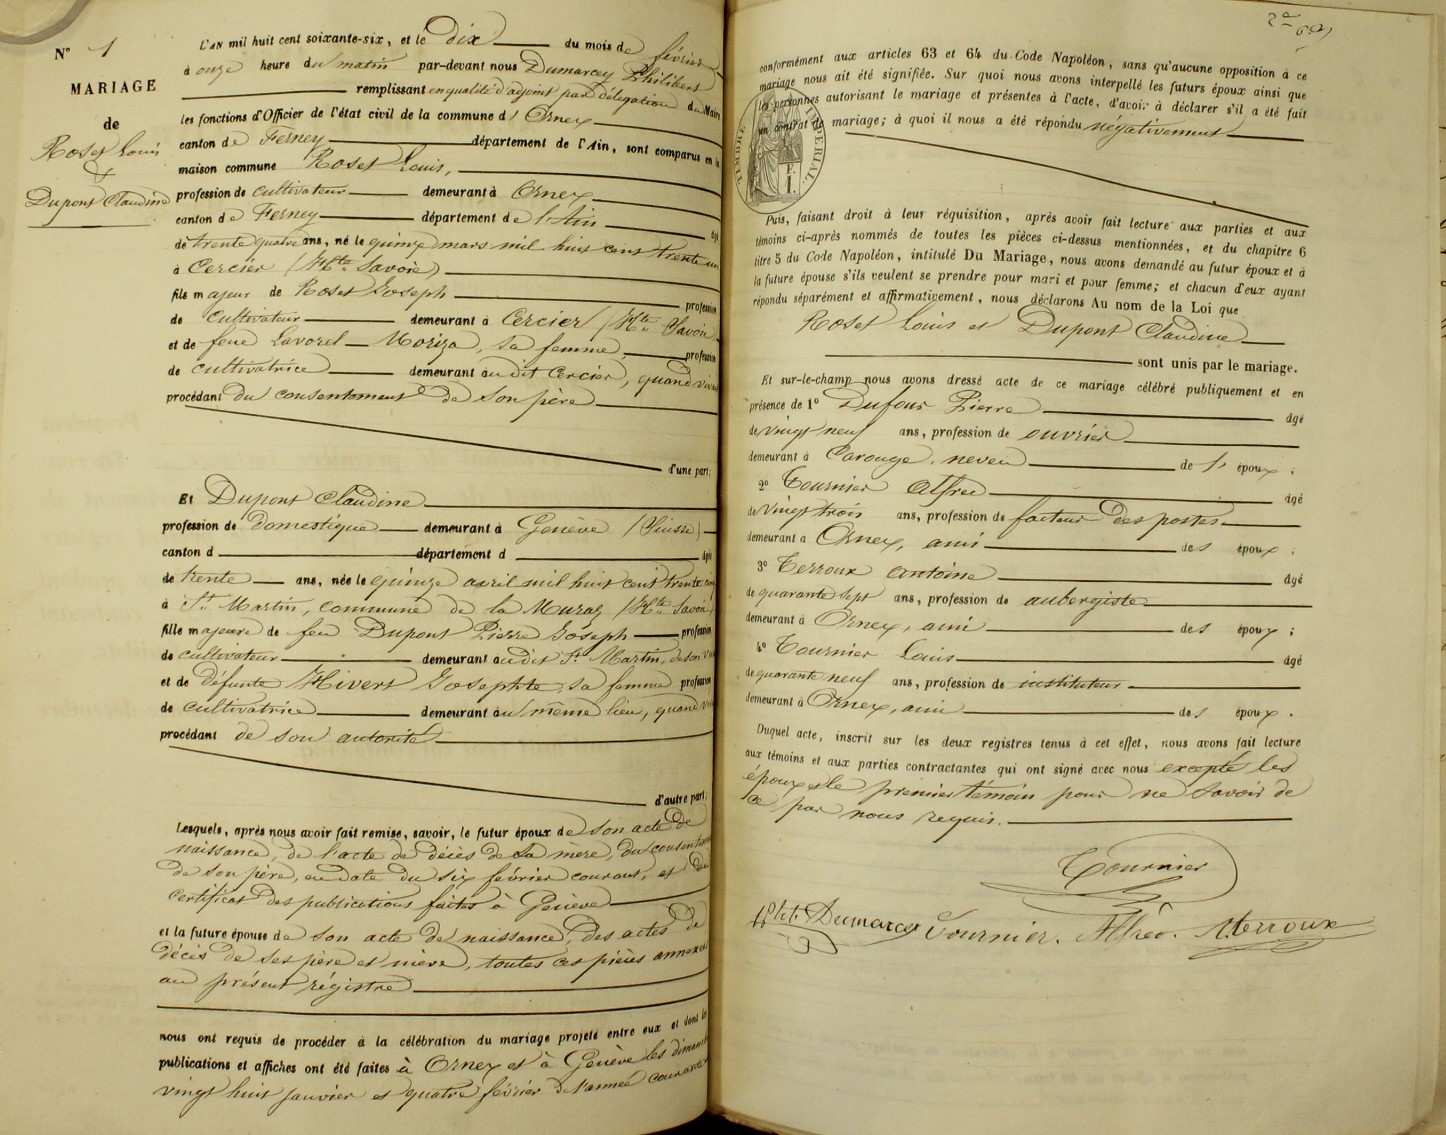 N° 1
MARIAGE
de
Roset Louis
&
Dupont Claudine
L'AN mil huit cent soixante-six, et le dix du mois de février
à onze heure du matin par-devant nous Dumarcey Philibert
remplissant en qualité d'adjoint par délégation du Maire
les fonctions d'Officier de l'état civil de la commune d' Ornex
canton de Ferney département de l'Ain, sont comparus en la
maison commune Roset Louis,
profession de cultivateur demeurant à Ornex
canton de Ferney département de l'Ain âgé
de trente quatre ans, né le quinze mars mil huit cent trente un
à Cercier (Hte Savoie)
fils majeur de Roset Joseph profession
de cultivateur demeurant à Cercier (Hte Savoie
et de feue Lavorel Moriza, sa femme, profession
de cultivatrice demeurant audit Cercier, quand vivait
procédant du consentement de son père
d'une part;
Et Dupont Claudine
profession de domestique demeurant à Genève (Suisse)
canton d département d âgée
de trente ans, née le quinze avril mil huit cent trente cinq
à St. Martin, commune de la Muraz (Hte Savoie)
fille majeure de feu Dupont Pierre Joseph profession
de cultivateur demeurant audit St. Martin, de son viv
et de défunte Hivert Josephte, sa femme profession
de cultivatrice demeurant au même lieu, quand viv
procédant de son autorité
d'autre part;
Lesquels, après nous avoir fait remise, savoir, le futur époux de son acte de
naissance, de l'acte de décès de sa mère, du consentement
de son père, en date du six février courant, et du
certificat des publications faites à Genève
et la future épouse de son acte de naissance, des actes de
décès de ses père et mère, toutes ces pièces annexées
au présent régistre
nous ont requis de procéder à la célébration du mariage projeté entre eux et dont les
publications et affiches ont été faites à Ornex et à Genève les dimanches
vingt huit janvier et quatre février de l'année courante
conformément aux articles 63 et 64 du Code Napoléon, sans qu'aucune opposition à ce
mariage nous ait été signifiée. Sur quoi nous avons interpellé les futurs époux ainsi que
les personnes autorisant le mariage et présentes à l'acte, d'avoir à déclarer s'il a été fait
un contrat de mariage; à quoi il nous a été répondu négativement
TIMBRE IMPÉRIAL
Puis, faisant droit à leur réquisition, après avoir fait lecture aux parties et aux
témoins ci-après nommés de toutes les pièces ci-dessus mentionnées, et du chapitre 6
titre 5 du Code Napoléon, intitulé Du Mariage, nous avons demandé au futur époux et à
la future épouse s'ils veulent se prendre pour mari et pour femme; et chacun d'eux ayant
répondu séparément et affirmativement, nous déclarons Au nom de la Loi que
Roset Louis et Dupont Claudine
sont unis par le mariage.
Et sur-le-champ nous avons dressé acte de ce mariage célébré publiquement et en
présence de 1° Dufour Pierre âgé
de vingt neuf ans, profession de ouvrier
demeurant à Carouge, neveu de l' époux;
2° Tournier Alfred âgé
de vingt trois ans, profession de facteur des postes
demeurant à Ornex, ami des époux;
3° Terroux Antoine âgé
de quarante sept ans, profession de aubergiste
demeurant à Ornex, ami des époux;
4° Tournier Louis âgé
de quarante neuf ans, profession de instituteur
demeurant à Ornex, ami des époux.
Duquel acte, inscrit sur les deux registres tenus à cet effet, nous avons fait lecture
aux témoins et aux parties contractantes qui ont signé avec nous excepté les
époux et le premier témoin pour ne savoir de
ce par nous requis.
Tournier
Dumarcey Tournier. Alfred. A Terroux